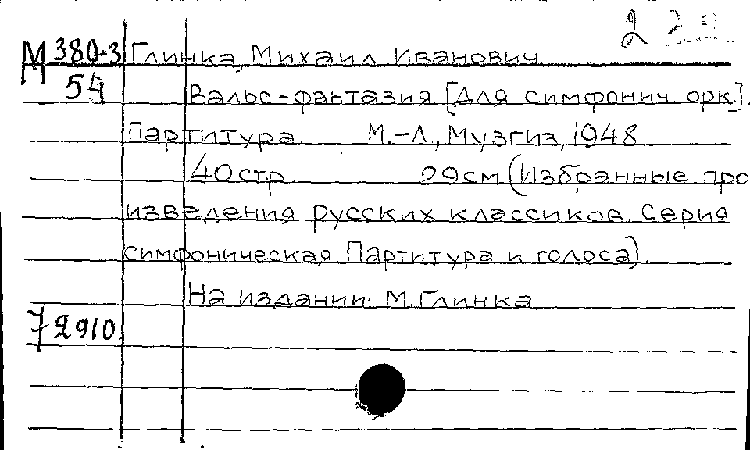 М 380-3 Глинка, Михаил Иванович
54 Вальс-фантазия [Для симфонич орк].
Партитура М.-Л., Музгиз, 1948
40 стр 29см (Избранные про
изведения русских классиков Серия
симфоническая Партитура и голоса).
На издании: М. Глинка
72910